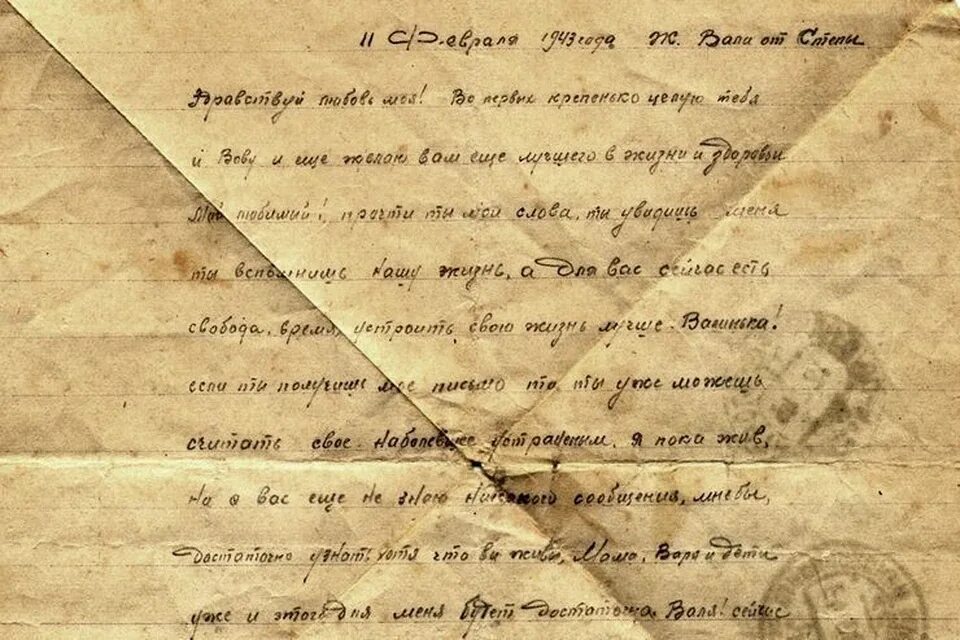 11 Февраля 1943 года Ж. Вали от Степы
Здравствуй любовь моя! Во первых крепенько целую тебя
и Вову и еще желаю вам еще лучшего в жизни и здоровьи
Мой любимий! прочти ты мои слова, ты увидишь меня
ты вспомнишь нашу жизнь, а для вас сейчас есть
свобода, время, устроить свою жизнь лучше. Валинька!
если ты получишь мое письмо то, ты уже можешь
считать свое наболевшее устраненым, я пока жив,
Но о вас еще не знаю никакого сообщения, мнебы,
достаточно узнать хотя что ви живи, Мама, Варя и дети
уже и этого для меня будет достаточно. Валя! сейчас